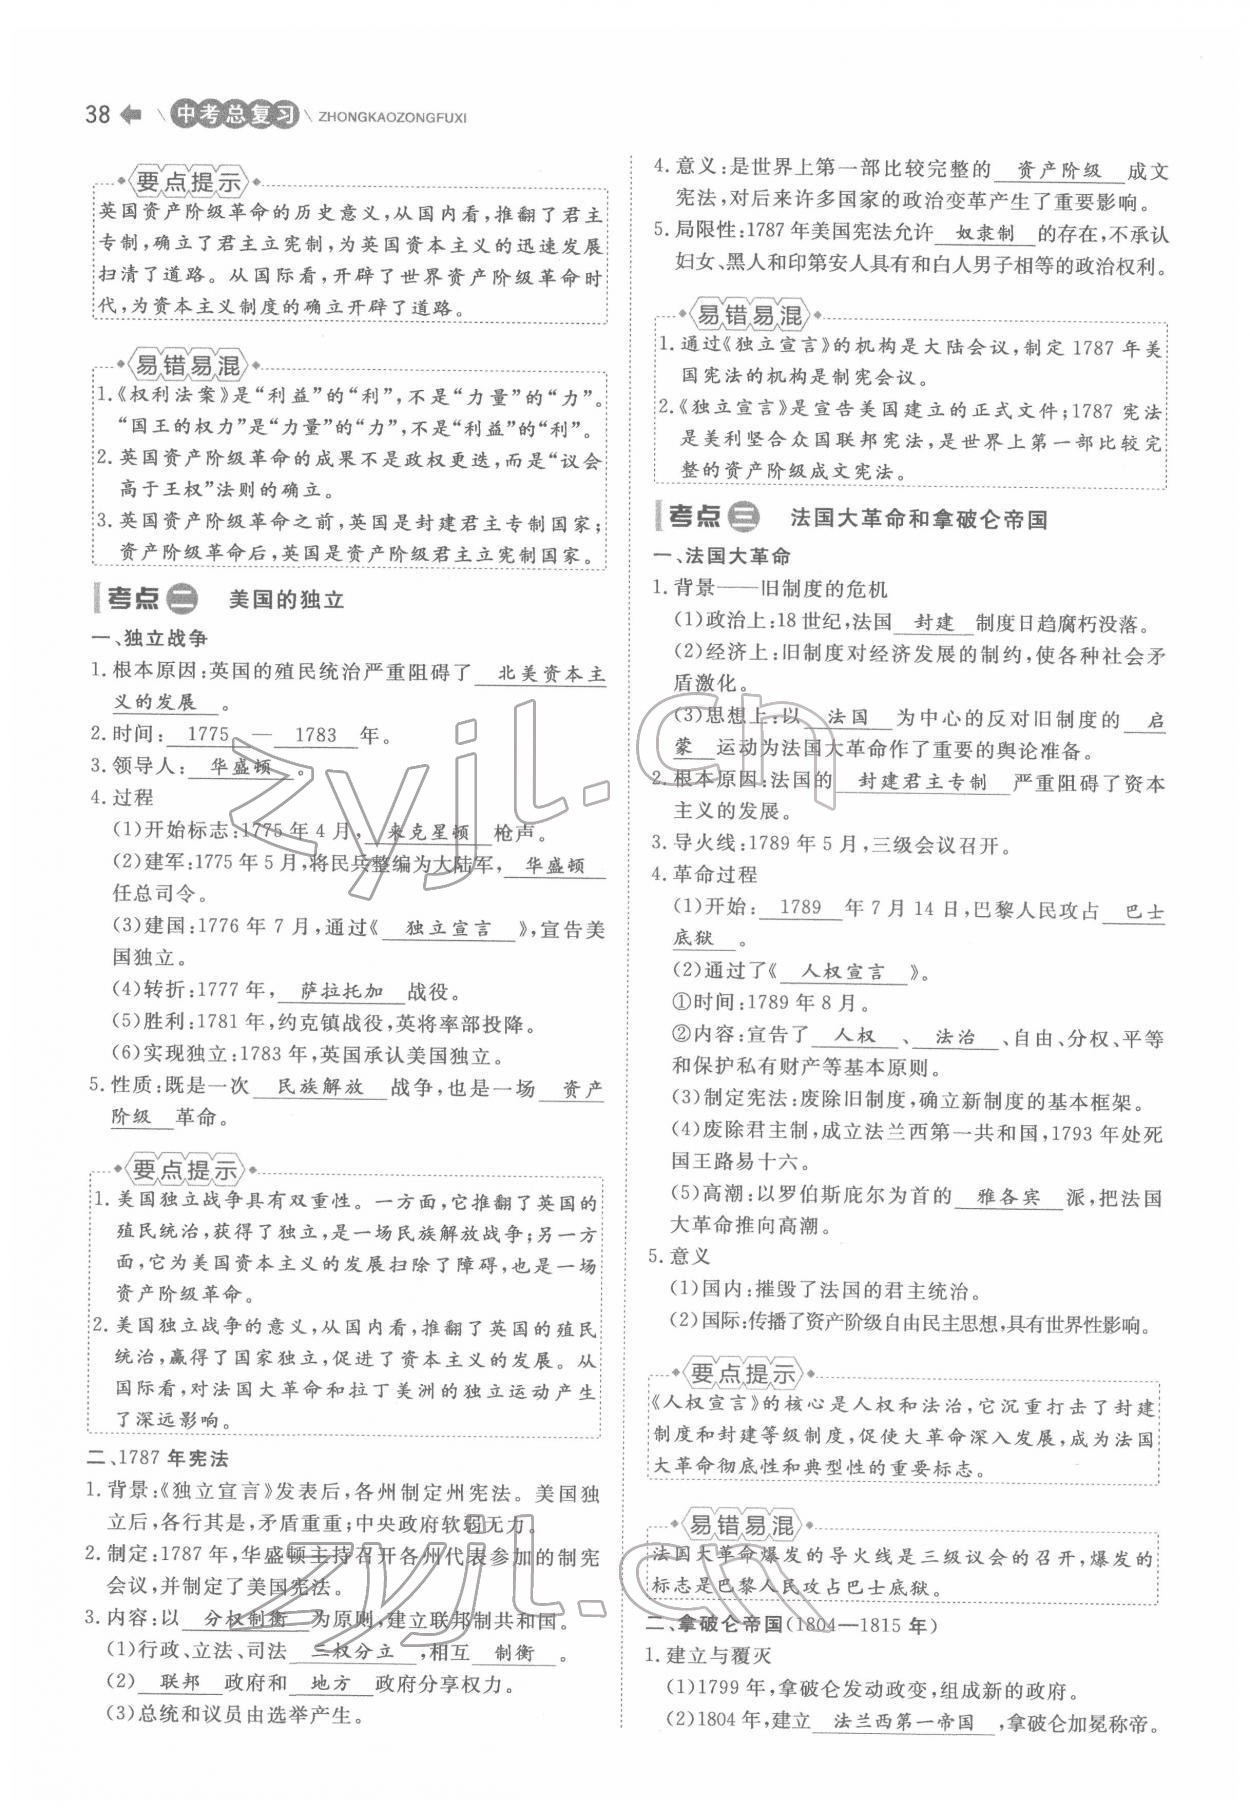 38 中考总复习 ZHONGKAOZONGFUXI
要点提示
英国资产阶级革命的历史意义,从国内看,推翻了君主
专制,确立了君主立宪制,为英国资本主义的迅速发展
扫清了道路。从国际看,开辟了世界资产阶级革命时
代,为资本主义制度的确立开辟了道路。
易错易混
1.《权利法案》是“利益”的“利”,不是“力量”的“力”。
“国王的权力”是“力量”的“力”,不是“利益”的“利”。
2. 英国资产阶级革命的成果不是政权更迭,而是“议会
高于王权”法则的确立。
3. 英国资产阶级革命之前,英国是封建君主专制国家;
资产阶级革命后,英国是资产阶级君主立宪制国家。
考点二 美国的独立
一、独立战争
1. 根本原因:英国的殖民统治严重阻碍了 北美资本主
义的发展 。
2. 时间: 1775 — 1783 年。
3. 领导人: 华盛顿 。
4. 过程
(1)开始标志:1775 年 4 月, 来克星顿 枪声。
(2)建军:1775 年 5 月,将民兵整编为大陆军, 华盛顿
任总司令。
(3)建国:1776 年 7 月,通过《 独立宣言 》,宣告美
国独立。
(4)转折:1777 年, 萨拉托加 战役。
(5)胜利:1781 年,约克镇战役,英将率部投降。
(6)实现独立:1783 年,英国承认美国独立。
5. 性质:既是一次 民族解放 战争,也是一场 资产
阶级 革命。
要点提示
1. 美国独立战争具有双重性。一方面,它推翻了英国的
殖民统治,获得了独立,是一场民族解放战争;另一方
面,它为美国资本主义的发展扫除了障碍,也是一场
资产阶级革命。
2. 美国独立战争的意义,从国内看,推翻了英国的殖民
统治,赢得了国家独立,促进了资本主义的发展。从
国际看,对法国大革命和拉丁美洲的独立运动产生
了深远影响。
二、1787 年宪法
1. 背景:《独立宣言》发表后,各州制定州宪法。美国独
立后,各行其是,矛盾重重;中央政府软弱无力。
2. 制定:1787 年,华盛顿主持召开各州代表参加的制宪
会议,并制定了美国宪法。
3. 内容:以 分权制衡 为原则,建立联邦制共和国。
(1)行政、立法、司法 三权分立 ,相互 制衡 。
(2) 联邦 政府和 地方 政府分享权力。
(3)总统和议员由选举产生。
4. 意义:是世界上第一部比较完整的 资产阶级 成文
宪法,对后来许多国家的政治变革产生了重要影响。
5. 局限性:1787 年美国宪法允许 奴隶制 的存在,不承认
妇女、黑人和印第安人具有和白人男子相等的政治权利。
易错易混
1. 通过《独立宣言》的机构是大陆会议,制定 1787 年美
国宪法的机构是制宪会议。
2.《独立宣言》是宣告美国建立的正式文件;1787 宪法
是美利坚合众国联邦宪法,是世界上第一部比较完
整的资产阶级成文宪法。
考点三 法国大革命和拿破仑帝国
一、法国大革命
1. 背景——旧制度的危机
(1)政治上:18 世纪,法国 封建 制度日趋腐朽没落。
(2)经济上:旧制度对经济发展的制约,使各种社会矛
盾激化。
(3)思想上:以 法国 为中心的反对旧制度的 启
蒙 运动为法国大革命作了重要的舆论准备。
2. 根本原因:法国的 封建君主专制 严重阻碍了资本
主义的发展。
3. 导火线:1789 年 5 月,三级会议召开。
4. 革命过程
(1)开始: 1789 年 7 月 14 日,巴黎人民攻占 巴士
底狱 。
(2)通过了《 人权宣言 》。
①时间:1789 年 8 月。
②内容:宣告了 人权 、 法治 、自由、分权、平等
和保护私有财产等基本原则。
(3)制定宪法:废除旧制度,确立新制度的基本框架。
(4)废除君主制,成立法兰西第一共和国,1793 年处死
国王路易十六。
(5)高潮:以罗伯斯庇尔为首的 雅各宾 派,把法国
大革命推向高潮。
5. 意义
(1)国内:摧毁了法国的君主统治。
(2)国际:传播了资产阶级自由民主思想,具有世界性影响。
要点提示
《人权宣言》的核心是人权和法治,它沉重打击了封建
制度和封建等级制度,促使大革命深入发展,成为法国
大革命彻底性和典型性的重要标志。
易错易混
法国大革命爆发的导火线是三级议会的召开,爆发的
标志是巴黎人民攻占巴士底狱。
二、拿破仑帝国(1804—1815 年)
1. 建立与覆灭
(1)1799 年,拿破仑发动政变,组成新的政府。
(2)1804 年,建立 法兰西第一帝国 ,拿破仑加冕称帝。
zyjl.cn
zyjl.cn